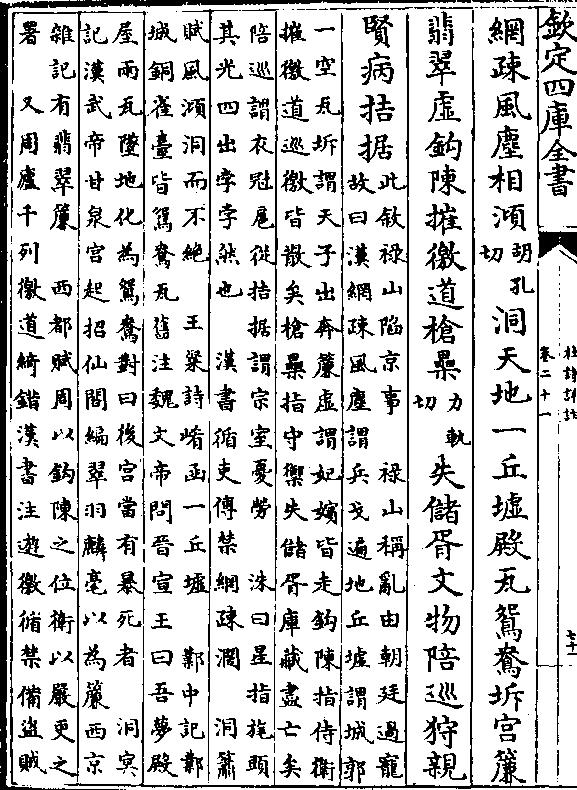 欽定四庫全書
杜詩詳註
卷二十一
七十一
網疎風塵相澒胡孔切洞天地一丘墟殿瓦鴛鴦坼宮簾
翡翠虛鈎陳摧徼道槍櫐力軌切失儲胥文物陪巡狩親
賢病拮据此敘祿山陷京事 祿山稱亂由朝廷過寵
故曰漢網疎風塵謂兵戈遍地丘墟謂城郭
一空瓦坼謂天子出奔簾虛謂妃嬪皆走鈎陳指侍衛
摧徼道巡徼皆散矣槍櫐指守禦失儲胥庫藏盡亡矣
陪巡謂衣冠扈從拮据謂宗室憂勞 洙曰星指旄頭
其光四出孛孛然也 漢書循吏傳禁網疎濶 洞簫
賦風澒洞而不絶 王粲詩崤函一丘墟 鄴中記鄴
城銅雀臺皆鴛鴦瓦舊注魏文帝問晉宣王曰吾夢殿
屋兩瓦墜地化為鴛鴦對曰後宮當有暴死者 洞冥
記漢武帝甘泉宮起招仙閣編翠羽麟毫以為簾西京
雜記有翡翠簾 西都賦周以鈎陳之位衛以嚴更之
署 又周廬千列徼道綺錯漢書注遊徼循禁備盜賊